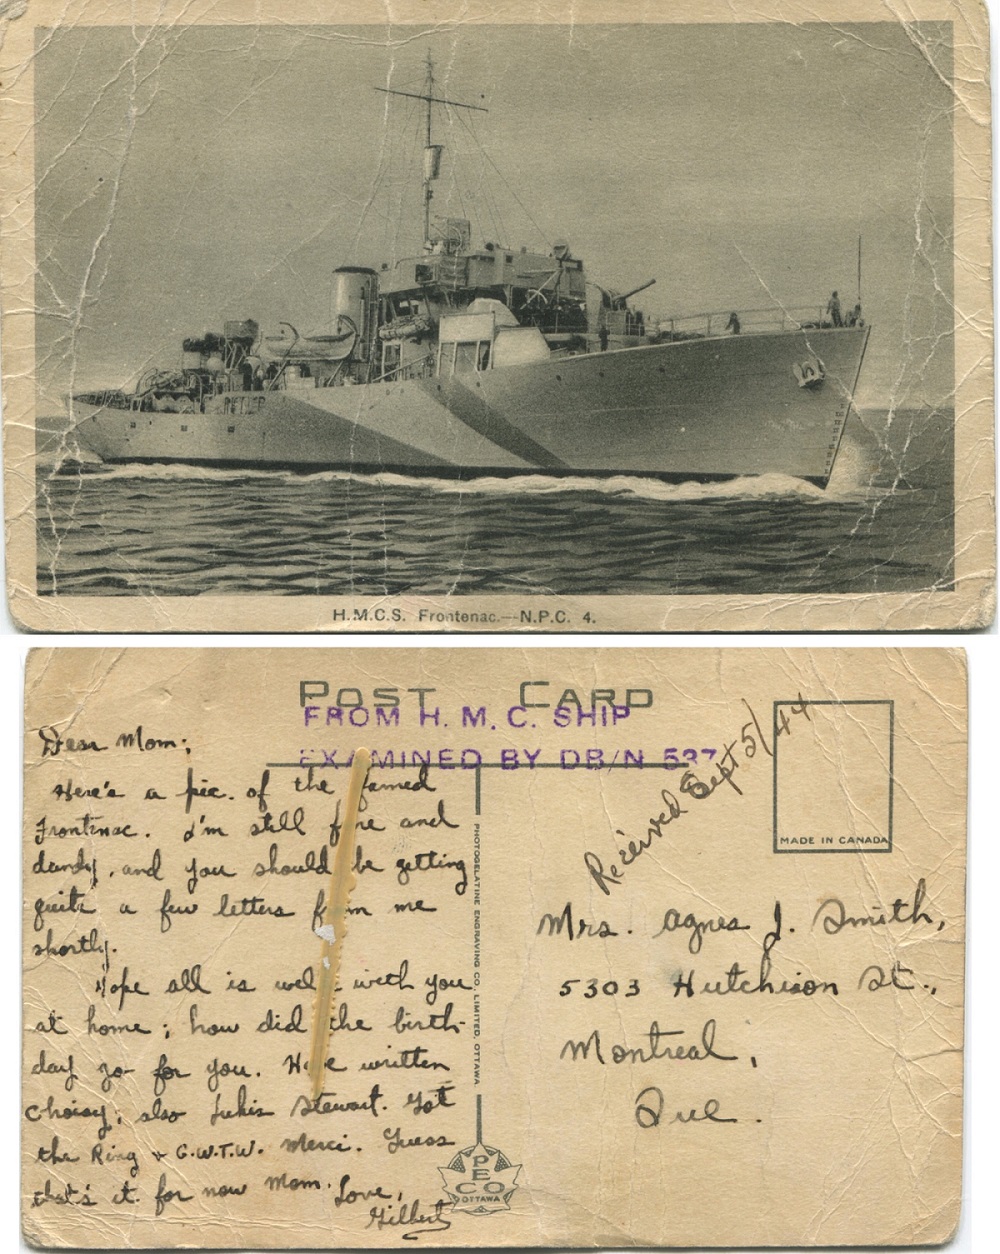 H.M.C.S. Frontenac.—N.P.C. 4.
POST CARD
FROM H. M. C. SHIP
EXAMINED BY DB/N 537
Dear Mom;
Here's a pic. of the famed
Frontenac. I'm still fine and
dandy, and you should be getting
quite a few letters from me
shortly.
Hope all is well with you
at home; how did the birth-
day go for you. Have written
Choisy, also Stewart. Got
the Ring & G.W.T.W. Merci. Guess
that's it for now Mom. Love,
Gilbert
PHOTOGELATINE ENGRAVING CO. LIMITED, OTTAWA
PECO
OTTAWA
Received Sept 5/44
MADE IN CANADA
Mrs. Agnes J. Smith,
5303 Hutchison St.,
Montreal,
Que.